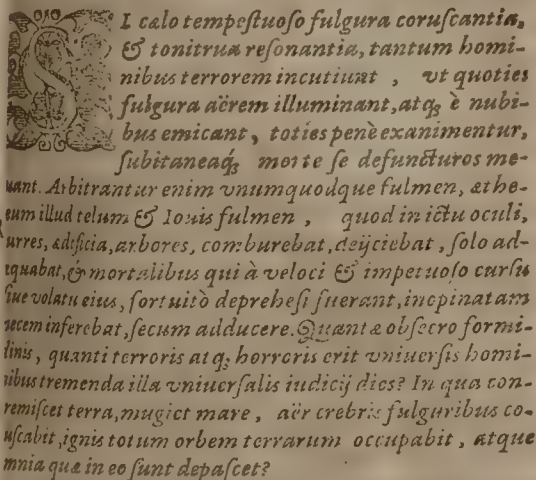 SI cœlo tempestuoso fulgura coruscantia,
& tonitrua resonantia, tantum homi-
nibus terrorem incutiunt , vt quoties
fulgura aërem illuminant, atq; è nubi-
bus emicant, toties penè exanimentur,
subitaneaq́; morte se defuncturos me-
uant. Arbitrantur enim vnumquodque fulmen, æthe-
eum illud telum & Iouis fulmen , quod in ictu oculi,
urres, ædificia, arbores, comburebat, deijciebat, solo ad-
æquabat, & mortalibus qui à veloci & impetuoso cursu
siue volatu eius, fortuitò deprehesi fuerant, inopinatam
necem inferebat, secum adducere. Quantæ obsecro formi-
dinis, quanti terroris atq; horroris erit vniuersis homi-
nibus tremenda illa vniuersalis iudicij dies? In qua con-
remiscet terra, mugiet mare, aër crebris fulguribus co-
uscabit, ignis totum orbem terrarum occupabit, atque
mnia quæ in eo sunt depascet?